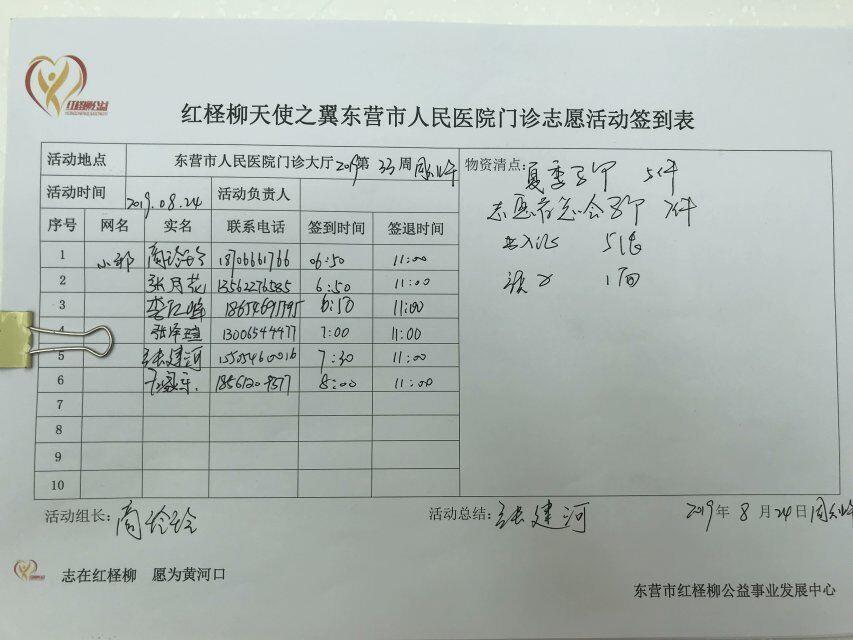 红柽柳公益
红柽柳天使之翼东营市人民医院门诊志愿活动签到表
活动地点 东营市人民医院门诊大厅 2019第 33 周
活动时间 2019.08.24 活动负责人
序号 网名 实名 联系电话 签到时间 签退时间
1 小郭 商玲玲 18706661766 06:50 11:00
2 张月花 13562276585 6:50 11:00
3 李红峰 18654691795 6:50 11:00
4 张泽瑄 13006544477 7:00 11:00
5 张建河 15505460016 7:30 11:00
6 8:00 11:00
7
8
9
10
物资清点: 夏季马甲 5件
志愿者总会马甲 7件
出入证 5张
旗 1面
活动组长: 商玲玲
活动总结: 张建河
2019年 8 月 24日
志在红柽柳 愿为黄河口
东营市红柽柳公益事业发展中心